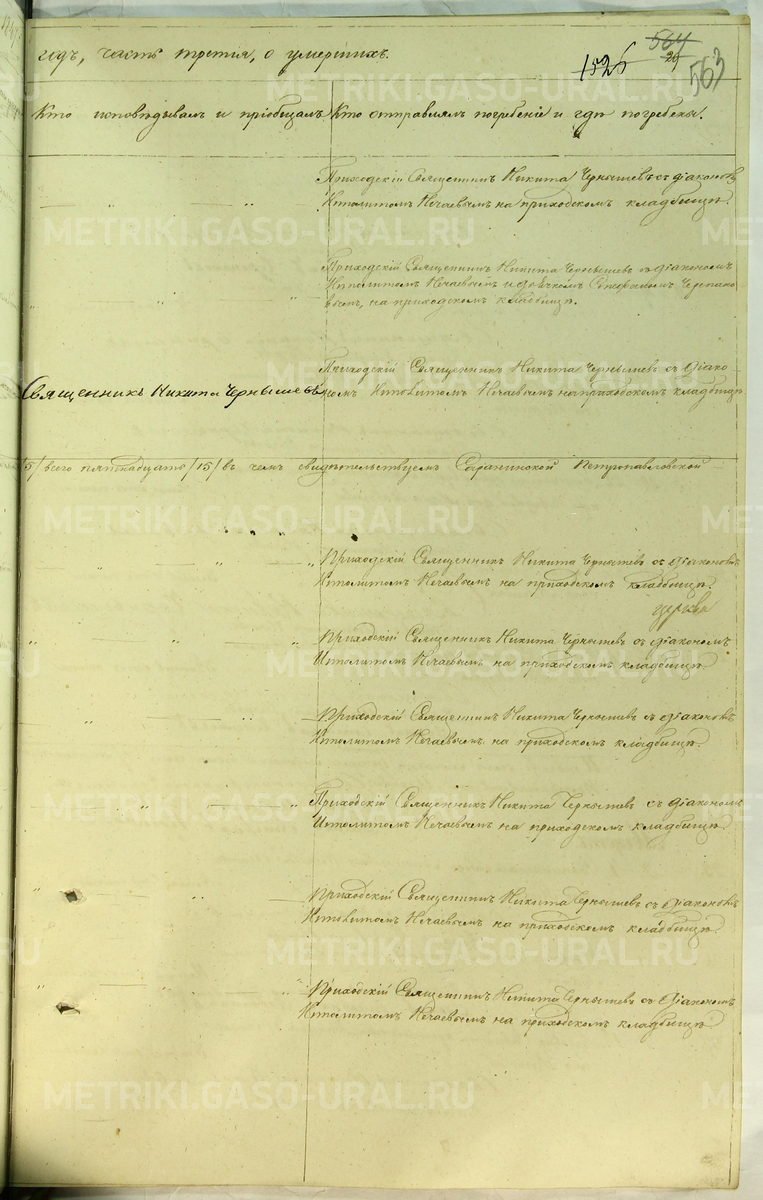 годъ, часть третiя, о умершихъ.
1526
564
29
563
Кто исповѣдывалъ и прiобщалъ. Кто отправлялъ погребенiе и гдѣ погребены.
Приходскiй Священникъ Никита Чернышевъ съ дiакономъ
Ипполитомъ Нечаевымъ на приходскомъ кладбищѣ.
Приходскiй Священникъ Никита Чернышевъ съ дiакономъ
Ипполитомъ Нечаевымъ и дьячкомъ Стефаномъ Черепано-
вымъ, на приходскомъ кладбищѣ.
Священникъ Никита Чернышевъ
Приходскiй Священникъ Никита Чернышевъ съ дiако-
номъ Ипполитомъ Нечаевымъ на приходскомъ кладбищѣ
/5/ всего пятнадцать /15/ въ чемъ свидѣтельствуемъ Саранинской Петропавловской
Приходскiй Священникъ Никита Чернышевъ съ дiакономъ
Ипполитомъ Нечаевымъ на приходскомъ кладбищѣ.
церкви
Приходскiй Священникъ Никита Чернышевъ съ дiакономъ
Ипполитомъ Нечаевымъ на приходскомъ кладбищѣ
Приходскiй Священникъ Никита Чернышевъ съ дiакономъ
Ипполитомъ Нечаевымъ на приходскомъ кладбищѣ.
Приходскiй Священникъ Никита Чернышевъ съ дiакономъ
Ипполитомъ Нечаевымъ на приходскомъ кладбищѣ.
Приходскiй Священникъ Никита Чернышевъ съ дiакономъ
Ипполитомъ Нечаевымъ на приходскомъ кладбищѣ.
Приходскiй Священникъ Никита Чернышевъ съ дiакономъ
Ипполитомъ Нечаевымъ на приходскомъ кладбищѣ
METRIKI.GASO-URAL.RU